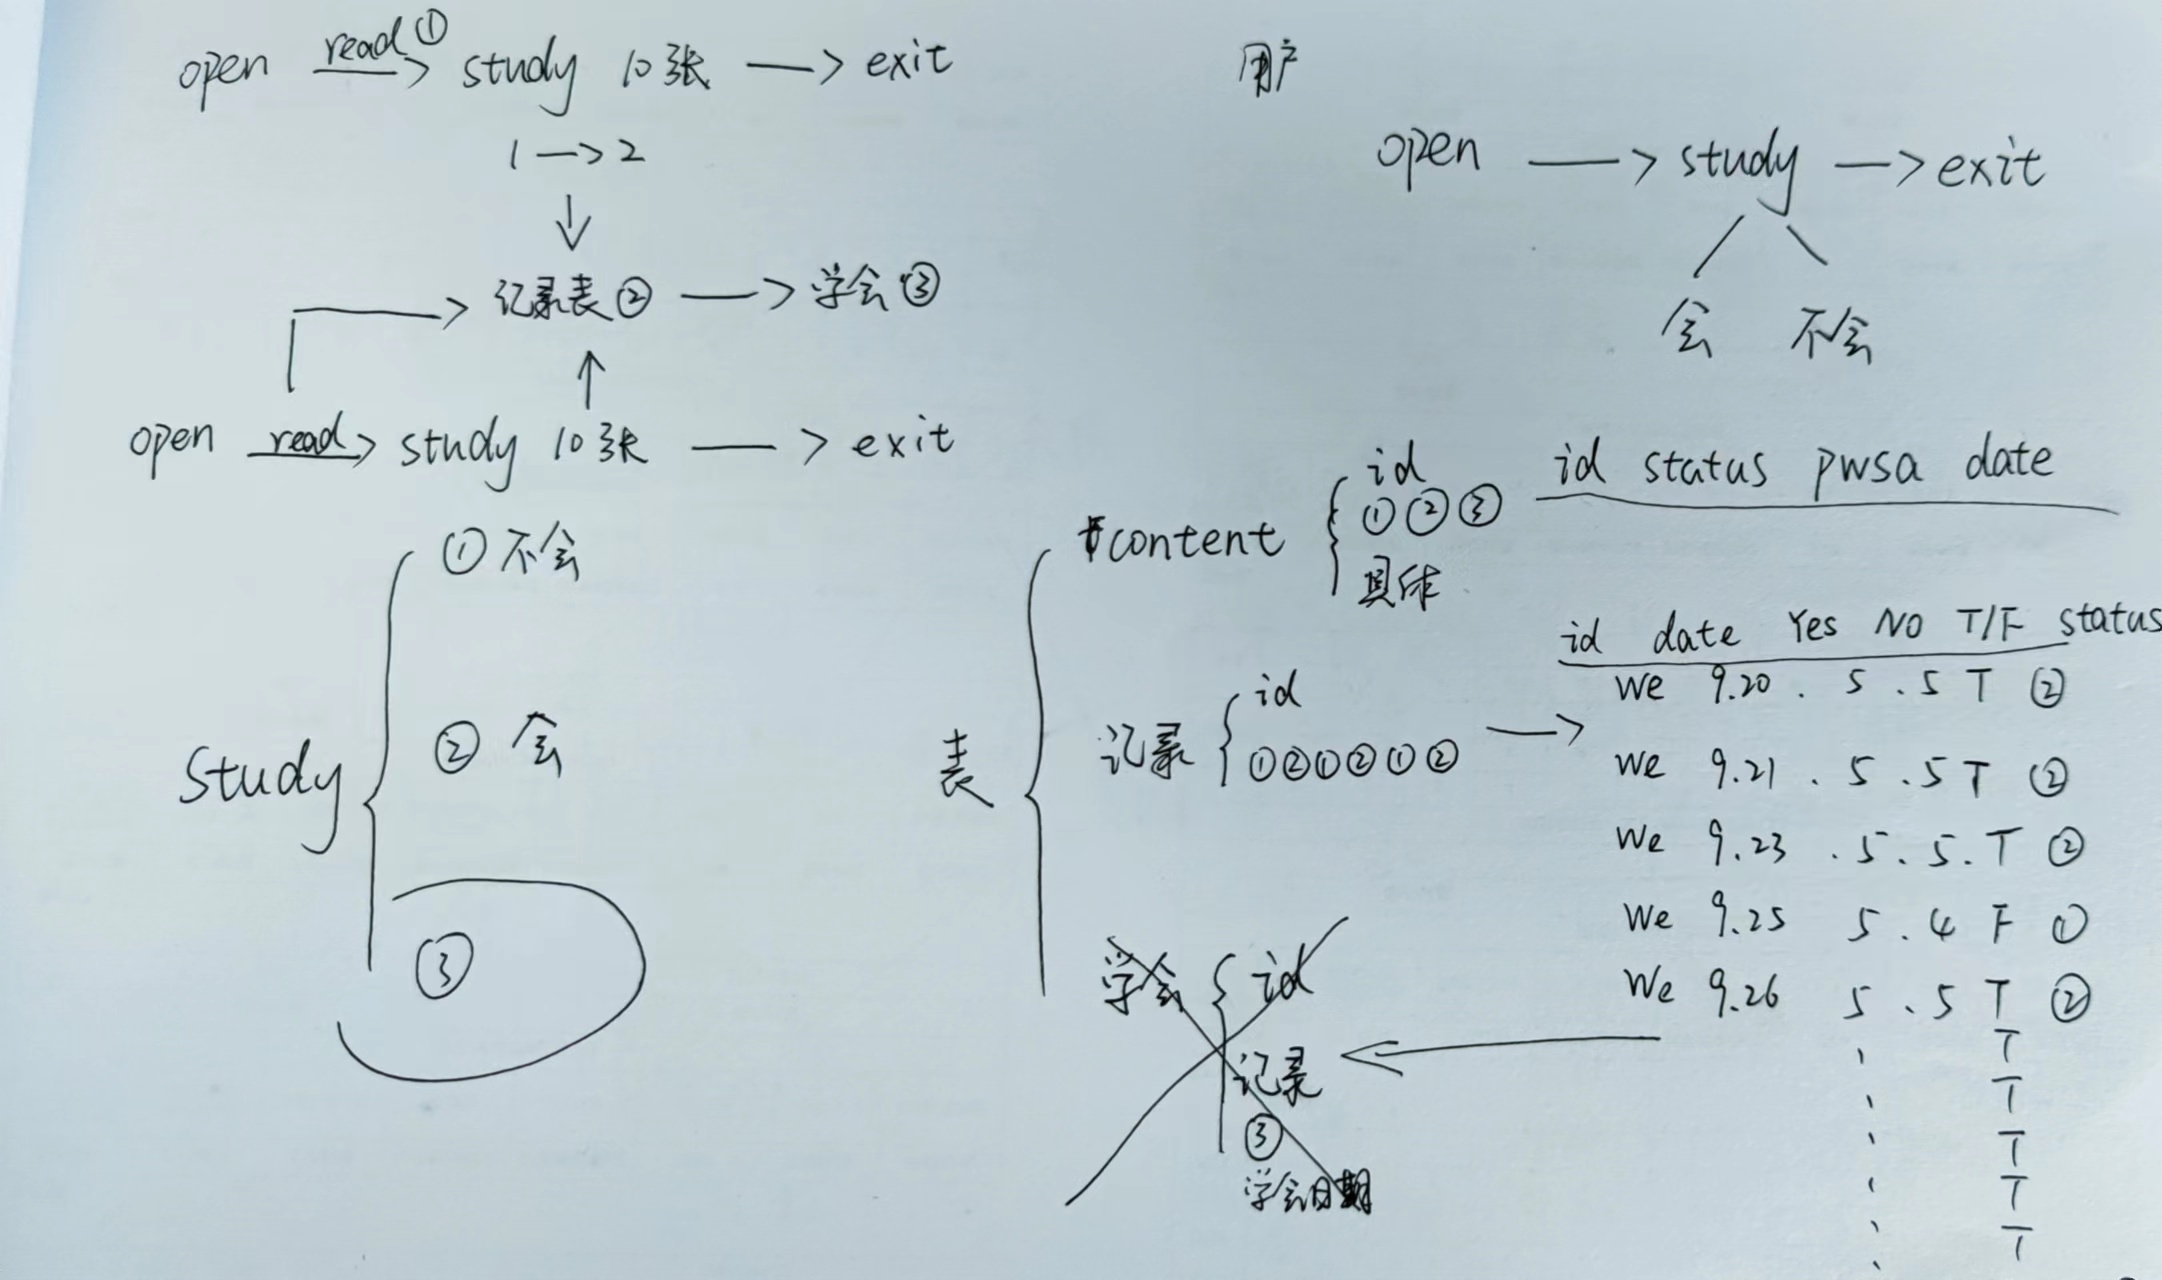 open read① → study 10张 → exit
1 → 2
↓
记录表② → 学会③
↑
open read → study 10张 → exit
study
① 不会
② 会
③
用户
open → study → exit
会 不会
表
content
id
①②③
具体
id status pwsa date
记录
id
①②①②①②
→
id date Yes No T/F status
we 9.20 . 5 . 5 T ②
we 9.21 . 5 . 5 T ②
we 9.23 . 5 . 5 . T ②
we 9.25 5 . 4 F ①
we 9.26 5 . 5 T ②
T
T
T
T
T
学会
id
记录
③
学会日期